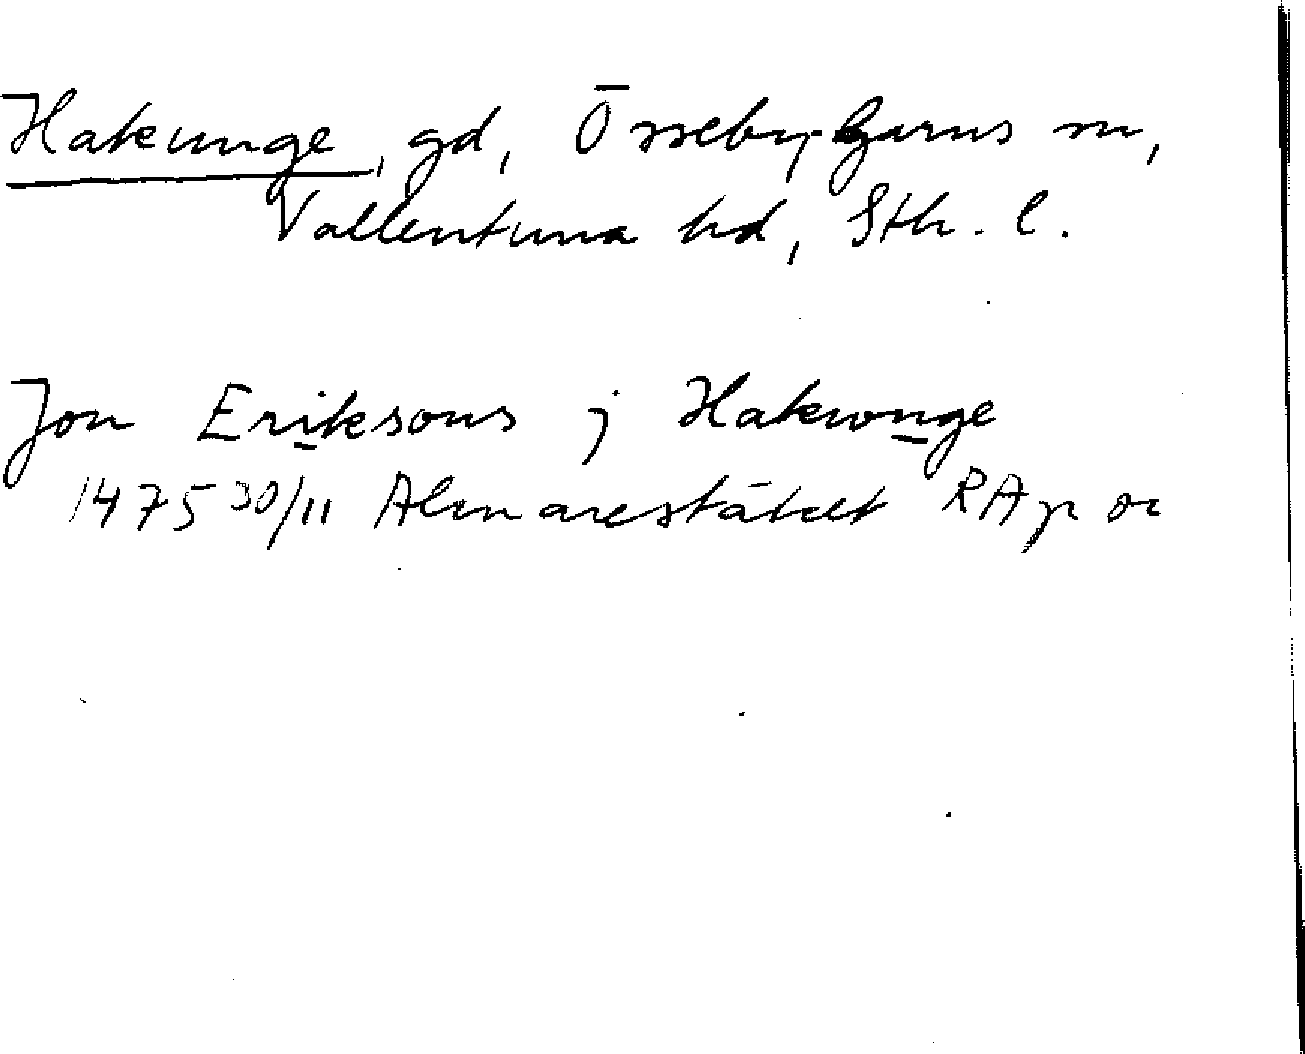 Hakunge, gd, Össeby-Garns sn,
Vallentuna hd, Sth. l.
Jon Eriksons j Hakwnge
1475 30/11 Almarestäket RAp or